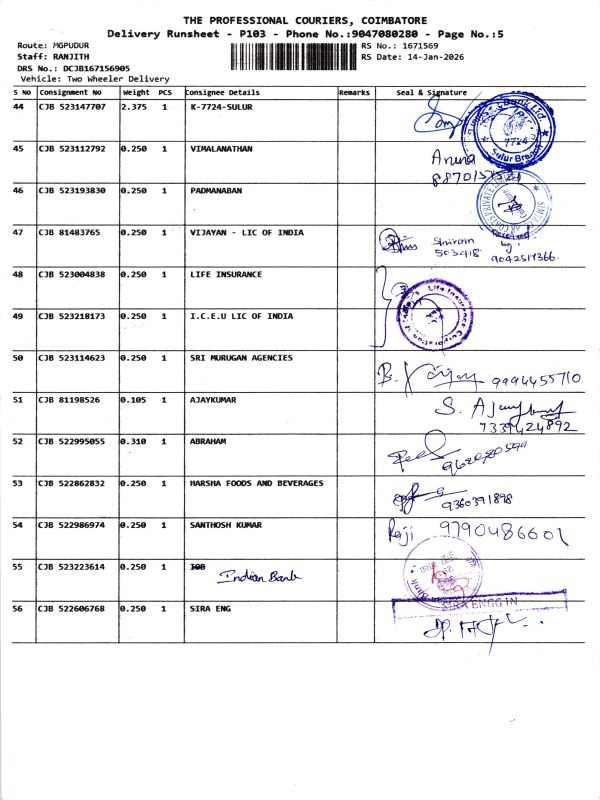 THE PROFESSIONAL COURIERS, COIMBATORE
Delivery Runsheet - P103 - Phone No.:9047080280 - Page No.:5
Route: MGPUDUR
RS No.: 1671569
Staff: RANJITH
RS Date: 14-Jan-2026
DRS No.: DCJB167156905
Vehicle: Two Wheeler Delivery
S No Consignment No Weight PCS Consignee Details Remarks Seal & Signature
44 CJB 523147707 2.375 1 K-7724-SULUR
Bank Ltd 7724 Sulur Branch
45 CJB 523112792 0.250 1 VIMALANATHAN
Aruna
46 CJB 523193830 0.250 1 PADMANABAN
47 CJB 81483765 0.250 1 VIJAYAN - LIC OF INDIA
Received by:
503418
9042517366
48 CJB 523004838 0.250 1 LIFE INSURANCE
Life Insurance Corporation of India
49 CJB 523218173 0.250 1 I.C.E.U LIC OF INDIA
50 CJB 523114623 0.250 1 SRI MURUGAN AGENCIES
9994455710
51 CJB 81198526 0.105 1 AJAYKUMAR
7339424892
52 CJB 522995055 0.310 1 ABRAHAM
53 CJB 522862832 0.250 1 HARSHA FOODS AND BEVERAGES
9360391898
54 CJB 522986974 0.250 1 SANTHOSH KUMAR
Raji 9790486601
55 CJB 523223614 0.250 1 IOB
Indian Bank
Bank
56 CJB 522606768 0.250 1 SIRA ENG
SIRA ENGG IN